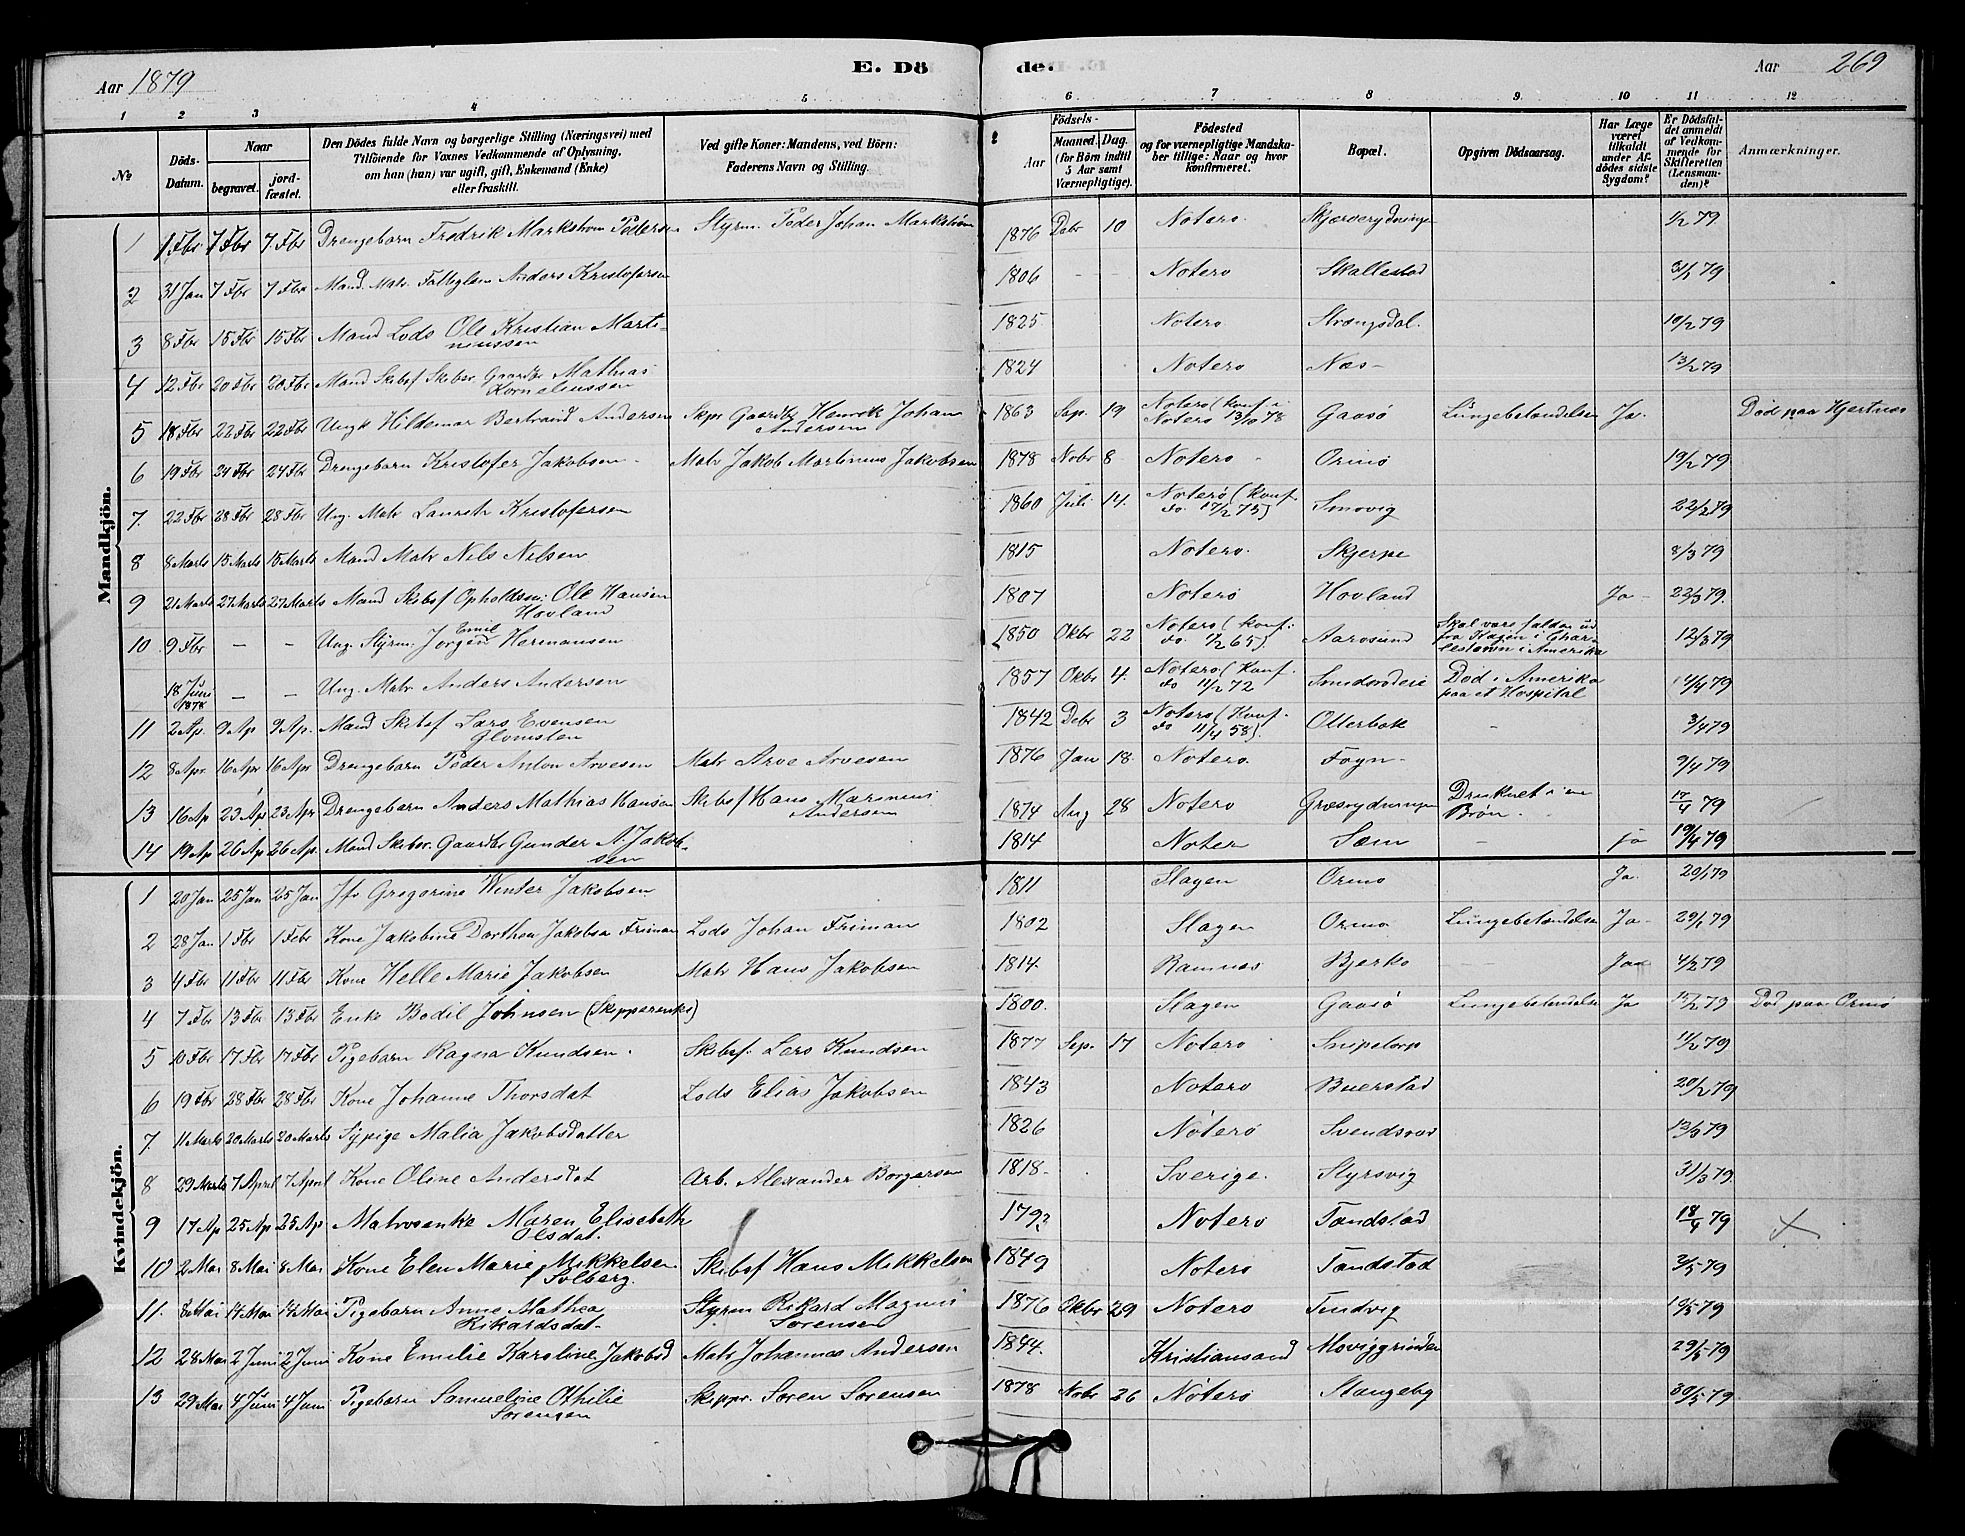 Aar 1879
E. Döde.
Aar 269
1 2 3 4 5 6 7 8 9. 10 11 12
No
Döds-Datum.
Naar
begravet.
jord-fæstet.
Den Dödes fulde Navn og borgerlige Stilling (Næringsvei) med
Tilföiende for Voxnes Vedkommende af Oplysning,
om han (hun) var ugift, gift, Enkemand (Enke)
eller fraskilt.
Ved gifte Koner: Mandens, ved Börn:
Faderens Navn og Stilling.
Födsels-
Aar
Maaned. Dag.
(for Börn indtil
5 Aar samt
Værnepligtige).
Födested
og for værnepligtige Mandska-
ber tillige: Naar og hvor
konfirmeret.
Bopæl.
Opgiven Dödsaarsag.
Har Læge
været
tilkaldt
under Af-
dödes sidste
Sygdom?
Er Dödsfal-
det anmeldt
af Vedkom-
mende for
Skifteretten
(Lensman-
den)?
Anmærkninger.
Mandkjön.
1 1 Fbr 7 Fbr 7 Fbr Drengebarn Fredrik Markstrom Pedersen Styrm. Peder Johan Markstrøm 1876 Debr 10 Notero Skjærverydningen 1/2 79
2 31 Jan 7 Fbr 7 Fbr Mand. Matr. Anders Kristofersen 1806 - - Notero Skallestad 31/1 79
3 8 Fbr 15 Fbr 15 Fbr Mand Lods Ole Kristian Marti-
niussen 1825 Notero Strængsdal. 10/2 79
4 12 Fbr 20 Fbr 20 Fbr Mand Skibsf Gaardbr Mathias
Korneliussen 1824 Notero Næs- 13/2 79
5 18 Fbr 22 Fbr 22 Fbr Ungk Hildemar Bertrand Andersen Skpr Gaardbr Henrik Johan
Andersen 1863 Sep. 19 Notero (konf i
Notero 13/10 78 Gaasö Lungebetændelse Ja. Død paa Hjertnes
6 19 Fbr 24 Fbr 24 Fbr Drengebarn Kristofer Jakobsen Matr Jakob Martinius Jakobsen 1878 Nobr 8 Notero Ormø 19/2 79
7. 22 Fbr 28 Fbr 28 Fbr Ung. Matr Lauritz Kristofersen 1860 Juli 14. Noterø (konf.
do. 17/2 75) Smovig 22/2 79
8 8 Marts 15 Marts 15 Marts Mand Matr Nils Nelsen 1815 Notero. Skjerpe 8/3 79
9 21 Marts 27 Marts 27 Marts Mand Skibsf Opholdsm: Ole Hansen
Hovland 1807 Noterø Hovland Ja - 22/3 79.
10 9 Fbr - - Ung. Styrm. Jørgen Emil Hermansen 1850 Okbr 22 Notero (konf.
do. 1/2 65). Aarosund Skal være falden ud
fra Hagen i Char-
lestown i Amerika 12/3 79
18 Juni
1878 - - Ung. Matr Anders Andersen 1857 Okbr 4. Notero (konf.
do 11/2 72 Smidsrødeie Død i Amerika
paa et Hospital 1/4 79
11 2 Ap. 9 Ap 9 Ap. Mand Skibsf Lars Evensen
Glomsten 1842 Debr 3 Notero (Konf.
do 11/4 58). Otterbek - 3/4 79
12 8 Apr. 16 Apr 16 Apr Drengebarn Peder Anton Arvesen Matr Arve Arvesen 1876 Jan 18. Notero. Föyn- 9/4 79
13 16 Ap 23 Ap 23 Apr Drengebarn Anders Mathias Hansen Skibsf Hans Marinius
Andersen 1874 Aug 28 Notero Græsrydningen Druknet i en
Brøn. 17/4 79
14 19 Ap 26 Ap 26 Ap. Mand Skibsr. Gaardbr Gunder A. Jakob-
sen 1814 Noter Sæm - ja 19/4 79
Kvindekjön.
1 20 Jan 25 Jan 25 Jan Jfr Gregorine Winter Jakobsen 1811 Slagen Ormo Ja. 20/1 79
2 28 Jan 1 Fbr 1 Febr Kone Jakobine Dorthea Jakobsa Friman Lods Johan Friman 1802 Slagen Ormo Lungebetændelse Ja- 29/1 79
3 4 Fbr 11 Fbr 11 Fbr Kone Helle Marie Jakobsen Matr Hans Jakobsen 1814. Ramnes Bjerko Ja 4/2 79
4 7 Fbr 13 Fbr 13 Fbr Enke Bodil Johnsen (Skipperenke) 1800. Slagen Gaasö Lungebetændelse Ja 15/2 79 Død paa Ormø
5 10 Fbr 17 Fbr 17 Fbr Pigebarn Ragna Knudsen. Skibsf. Lars Knudsen 1877 Sep. 17 Notero Snipetorp 11/2 79
6 19 Fbr 28 Fbr 28 Fbr Kone Johanne Thorsdat Lods Elias Jakobsen 1843 Notero Buerstad 20/2 79
7. 11 Marts 20 Marts 20 Marts Sypige Malia Jakobsdatter 1826 Nøtero Svendsrod 12/3 79
8 29 Marts 7 April 7 April Kone Oline Andersdat Arb. Alexander Borgersen 1818 Sverige. Styrsvig 31/3 79
9 17 Ap 25 Ap 25 Ap Matrosenke Maren Elisabeth
Olsdat. 179? Notero Tandstad 18/4 79
10 2 Mai 8 Mai 8 Mai Kone Elen Marie Mikkelsen
f Solberg. Skibsf Hans Mikkelsen 1849 Notero Tandstad 3/5 79
11. 8 Mai 14 Mai 14 Mai Pigebarn Anne Mathea
Rikardsdat- Styrm Rikard Magnus
Sorensen 1876 Okbr 29 Notero Tindvig 10/5 79
12 28 Mai 2 Juni 2 Juni Kone Emilie Karoline Jakobsd Matr Johannes Andersen 1844. Kristiansand Moviggrinden 29/5 79
13 29 Mai 4 Juni 4 Juni Pigebarn Samueline Othilie
Sorensen Skippr. Soren Sorensen 1878 Nobr 26 Nøtero Stangeby 30/5 79